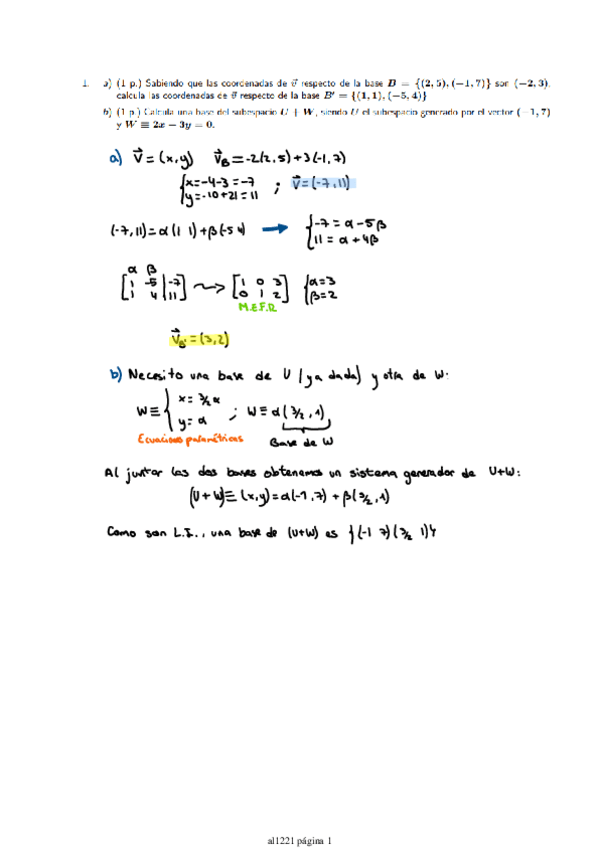 1. a) (1 p.) Sabiendo que las coordenadas de v⃗ respecto de la base B = {(2, 5), (−1, 7)} son (−2, 3),
calcula las coordenadas de v⃗ respecto de la base B' = {(1, 1), (−5, 4)}
b) (1 p.) Calcula una base del subespacio U + W, siendo U el subespacio generado por el vector (−1, 7)
y W ≡ 2x − 3y = 0.
a) V⃗ = (x,y) V⃗B = -2(2,5)+3(-1,7)
{x=-4-3=-7
{y=-10+21=11 ; V⃗=(-7,11)
(-7,11)=α(1 1)+β(-5 4) → {-7=α-5β
{11=α+4β
α β
[1 -5 | -7] ⇝ [1 0 3] {α=3
[1 4 | 11] [0 1 2] {β=2
M.E.F.R
V⃗B'=(3,2)
b) Necesito una base de U (ya dada) y otra de W:
W≡ {x=3/2α
{y=α ; W≡α(3/2,1)
Ecuaciones paramétricas Base de W
Al juntar las dos bases obtenemos un sistema generador de U+W:
(U+W)≡(x,y)=α(-1,7)+β(3/2,1)
Como son L.I., una base de (U+W) es {(-1 7)(3/2 1)}
al1221 página 1